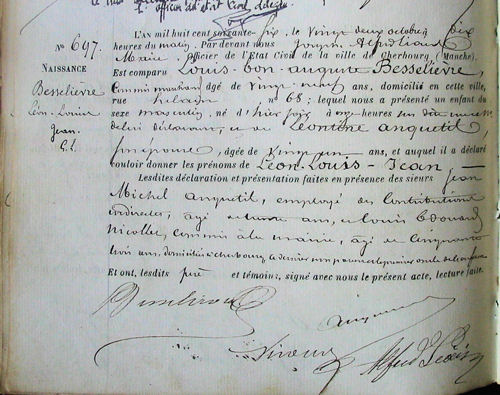 officier de l'état Civil, délégué
N° 697.
NAISSANCE
Besselièvre
Léon Louis
Jean
L'AN mil huit cent soixante-six, le vingt deux octobre dix
heures du matin. Par devant nous Joseph Alfred Liais
Maire, Officier de l'État Civil de la ville de Cherbourg (Manche)
Est comparu Louis-bon-auguste Besselièvre,
Commis marchand âgé de vingt neuf ans, domicilié en cette ville,
rue N° 68; lequel nous a présenté un enfant du
sexe masculin, né d'hier heures
de lui déclarant, et de Léontine anquetil,
son épouse, âgée de vingt un ans, et auquel il a déclaré
vouloir donner les prénoms de Léon-Louis-Jean
Lesdites déclaration et présentation faites en présence des sieurs Jean
Michel anquetil, employé des Contributions
indirectes, âgé ans, et Louis Edouard
Nicollet, commis à la mairie, âgé de cinquante
trois ans, domiciliés à cherbourg
Et ont, lesdits père et témoins, signé avec nous le présent acte, lecture faite.
Alfred Liais